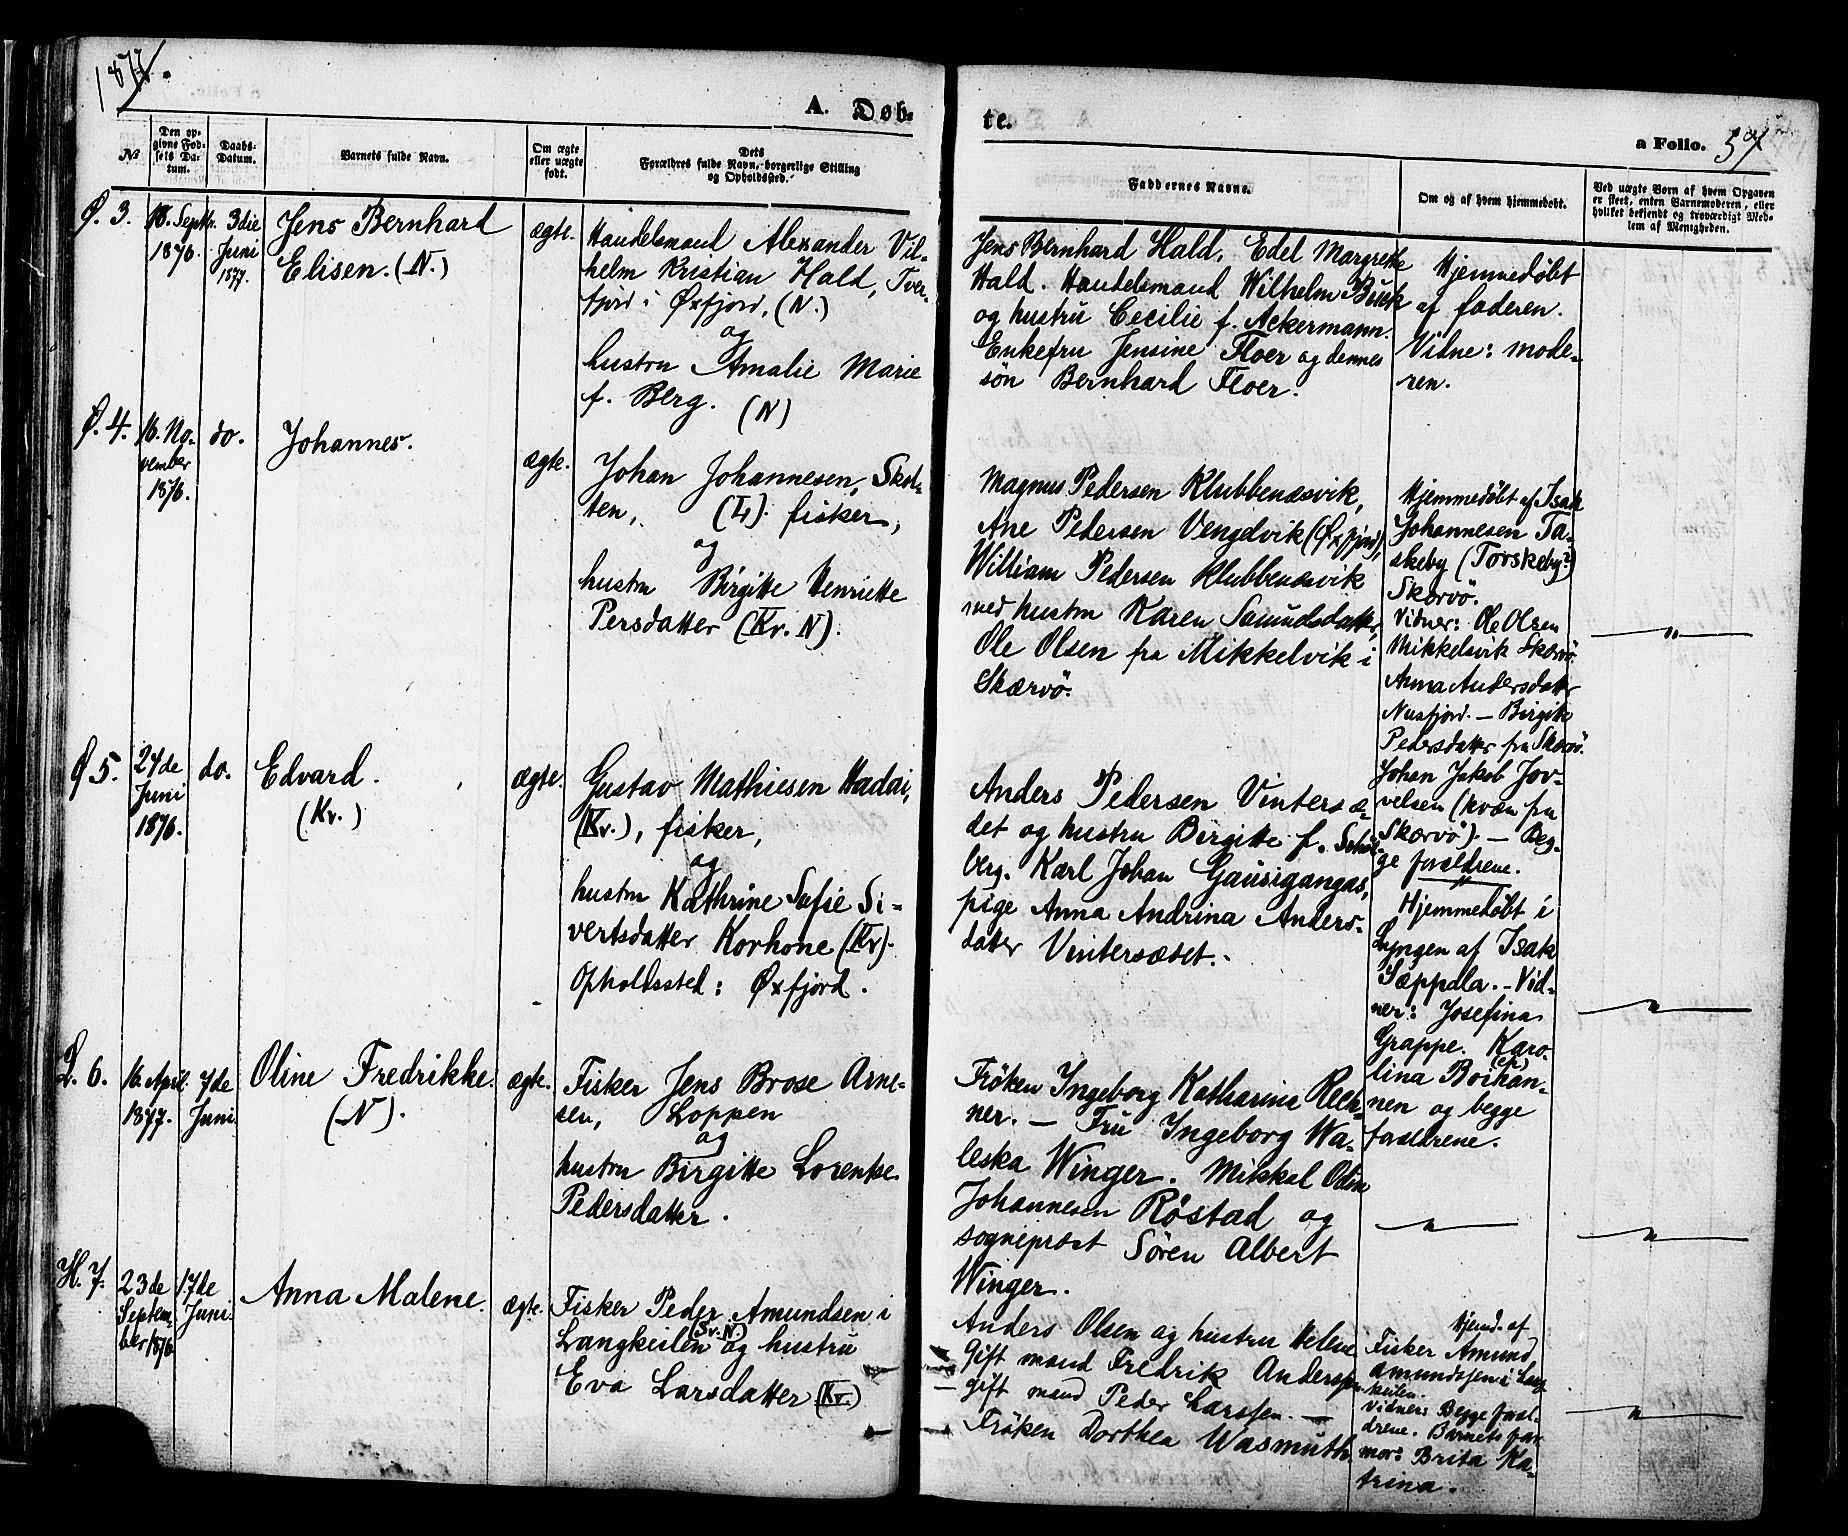 1877.
A. Døb-
te.
a Folio. 57
№
Den op-
givne Fød-
sels Da-
tum.
Daabs-
Datum.
Barnets fulde Navn.
Om ægte
eller uægte
født.
Dets
Forældres fulde Navn, borgerlige Stilling
og Opholdssted.
Faddernes Navne.
Om og af hvem hjemmedøbt.
Ved uægte Børn af hvem Opgaven
er skeet, enten Barnemoderen, eller
hvilket bekjendt og troværdigt Med-
lem af Menigheden.
Ø. 3.
18. Septbr.
1876.
3die
Juni
1877.
Jens Bernhard
Elisen. (N.)
ægte.
Handelsmand Alexander Vil-
helm Kristian Hald, Tver-
fjord i Øxfjord, (N.)
og
hustru Amalie Marie
f. Berg. (N)
Jens Bernhard Hald, Edel Margrethe
Hald. Handelsmand Wilhelm Buck
og hustru Cecilie f. Ackermann.
Enkefru Jensine Floer og dennes
søn Bernhard Floer.
Hjemmedøbt
af faderen.
Vidne: mode-
ren.
Ø. 4.
16. No-
vember
1876.
do.
Johannes.
ægte.
Johan Johannesen, Skol-
ten, (L). fisker,
og
hustru Birgitte Henriette
Persdatter (Kv. N).
Magnus Pedersen Klubbenæsvik,
Ane Pedersen Vengdvik (Øxfjord),
William Pedersen Klubbenæsvik
med hustru Karen Samundsdatter,
Ole Olsen fra Mikkelvik i
Skærvö.
Hjemmedøbt af Isak
Johannesen Ta-
skeby (Torskeby?)
Skærvö.
Vidner: Ole Olsen
Mikkelsvik Skærvö.
Anna Andersdatter
Nusfjord. – Birgitte
Pedersdatter fra Skærvö.
Johan Jakob Jov-
velsen (kvæn fra
Skærvö). – Beg-
ge forældrene.
"
Ø 5.
24de
Juni
1876.
do.
Edvard.
(Kv.)
ægte.
Gustav Mathiesen Hadai,
(Kv.), fisker,
og
hustru Kathrine Sofie Si-
vertsdatter Korhone (Kv).
Opholdssted: Øxfjord.
Anders Pedersen Vintersæ-
det og hustru Birgitte f. Schul-
berg. Karl Johan Gausigangas,
pige Anna Andrina Anders-
datter Vintersædet.
Hjemmedøbt i
Lyngen af Isak
Sæppæla. – Vid-
ner: Josefina
Grappe. Karo-
lina Boihan-
nen og begge
forældrene.
"
L. 6.
16. April
1877.
7de
Juni.
Oline Fredrikke.
(N).
ægte.
Fisker Jens Brose Arne-
sen, Loppen
og
hustru Birgitte Lorentse
Pedersdatter.
Frøken Ingeborg Katharina Rech-
ner. – Fru Ingeborg Wa-
leska Winger. Mikkal Odin
Johannesen Röstad og
sognepræst Sören Albert
Winger.
"
"
H. 7.
23de
Septem-
ber 1876
17de
Juni.
Anna Malene.
ægte.
Fisker Peder Amundsen i
Langkeilen (Sv. N.) og hustru
Eva Larsdatter (Kv.)
Anders Olsen og hustru Helene
– Gift mand Fredrik Anderssen
– gift mand Peder Larssen. –
Frøken Dorthea Wasmuth.
Hjemd. af
Fisker Amund
Amundssen i Lang-
keilen.
Vidner: Begge foræl-
drene. Barnets far-
mor: Brita Ka-
trina.
"